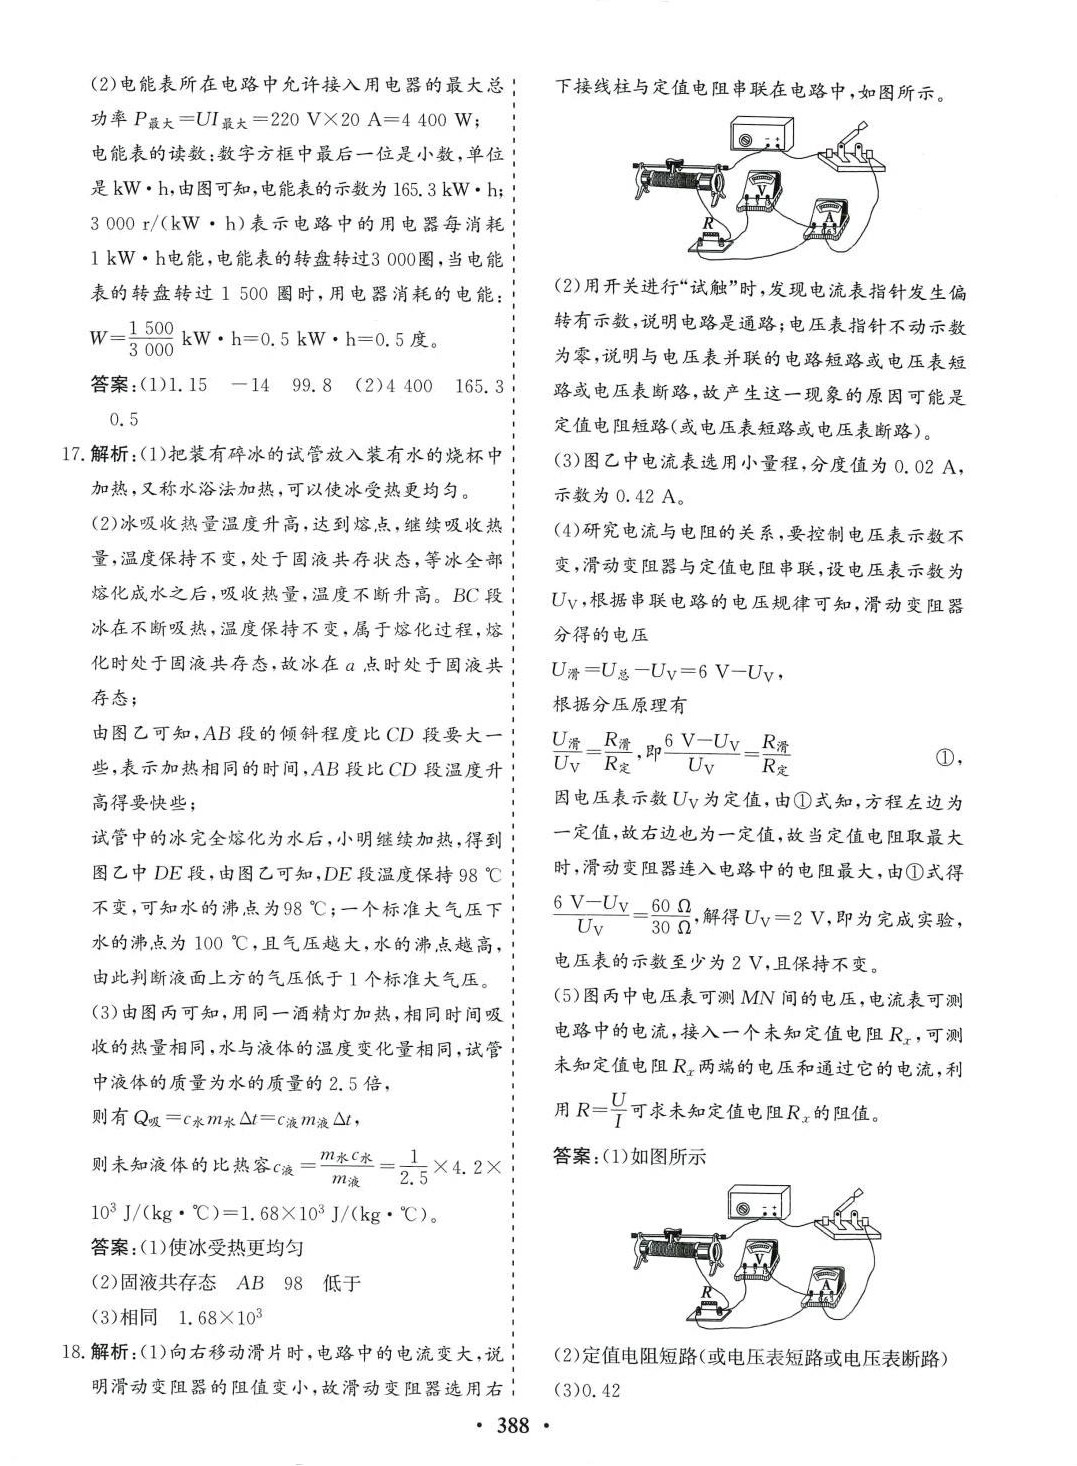 (2)电能表所在电路中允许接入用电器的最大总
功率 P最大=UI最大=220 V×20 A=4 400 W;
电能表的读数:数字方框中最后一位是小数,单位
是 kW·h,由图可知,电能表的示数为 165.3 kW·h;
3 000 r/(kW·h)表示电路中的用电器每消耗
1 kW·h电能,电能表的转盘转过3 000圈,当电能
表的转盘转过 1 500 圈时,用电器消耗的电能:
W=1 500/3 000 kW·h=0.5 kW·h=0.5 度。
答案:(1)1.15 −14 99.8 (2)4 400 165.3
0.5
17.解析:(1)把装有碎冰的试管放入装有水的烧杯中
加热,又称水浴法加热,可以使冰受热更均匀。
(2)冰吸收热量温度升高,达到熔点,继续吸收热
量,温度保持不变,处于固液共存状态,等冰全部
熔化成水之后,吸收热量,温度不断升高。BC 段
冰在不断吸热,温度保持不变,属于熔化过程,熔
化时处于固液共存态,故冰在 a 点时处于固液共
存态;
由图乙可知,AB 段的倾斜程度比 CD 段要大一
些,表示加热相同的时间,AB 段比 CD 段温度升
高得要快些;
试管中的冰完全熔化为水后,小明继续加热,得到
图乙中 DE 段,由图乙可知,DE 段温度保持 98 ℃
不变,可知水的沸点为98 ℃;一个标准大气压下
水的沸点为 100 ℃,且气压越大,水的沸点越高,
由此判断液面上方的气压低于 1 个标准大气压。
(3)由图丙可知,用同一酒精灯加热,相同时间吸
收的热量相同,水与液体的温度变化量相同,试管
中液体的质量为水的质量的 2.5 倍,
则有 Q吸=c水m水Δt=c液m液Δt,
则未知液体的比热容c液=m水c水/m液=1/2.5×4.2×
10³ J/(kg·℃)=1.68×10³ J/(kg·℃)。
答案:(1)使冰受热更均匀
(2)固液共存态 AB 98 低于
(3)相同 1.68×10³
18.解析:(1)向右移动滑片时,电路中的电流变大,说
明滑动变阻器的阻值变小,故滑动变阻器选用右
下接线柱与定值电阻串联在电路中,如图所示。
V
A
R
(2)用开关进行“试触”时,发现电流表指针发生偏
转有示数,说明电路是通路;电压表指针不动示数
为零,说明与电压表并联的电路短路或电压表短
路或电压表断路,故产生这一现象的原因可能是
定值电阻短路(或电压表短路或电压表断路)。
(3)图乙中电流表选用小量程,分度值为 0.02 A,
示数为 0.42 A。
(4)研究电流与电阻的关系,要控制电压表示数不
变,滑动变阻器与定值电阻串联,设电压表示数为
UV,根据串联电路的电压规律可知,滑动变阻器
分得的电压
U滑=U总−UV=6 V−UV,
根据分压原理有
U滑/UV=R滑/R定,即(6 V−UV)/UV=R滑/R定 ①,
因电压表示数UV为定值,由①式知,方程左边为
一定值,故右边也为一定值,故当定值电阻取最大
时,滑动变阻器连入电路中的电阻最大,由①式得
(6 V−UV)/UV=60 Ω/30 Ω,解得UV=2 V,即为完成实验,
电压表的示数至少为 2 V,且保持不变。
(5)图丙中电压表可测 MN 间的电压,电流表可测
电路中的电流,接入一个未知定值电阻 Rx,可测
未知定值电阻 Rx 两端的电压和通过它的电流,利
用 R=U/I 可求未知定值电阻 Rx 的阻值。
答案:(1)如图所示
V
A
R
(2)定值电阻短路(或电压表短路或电压表断路)
(3)0.42
· 388 ·